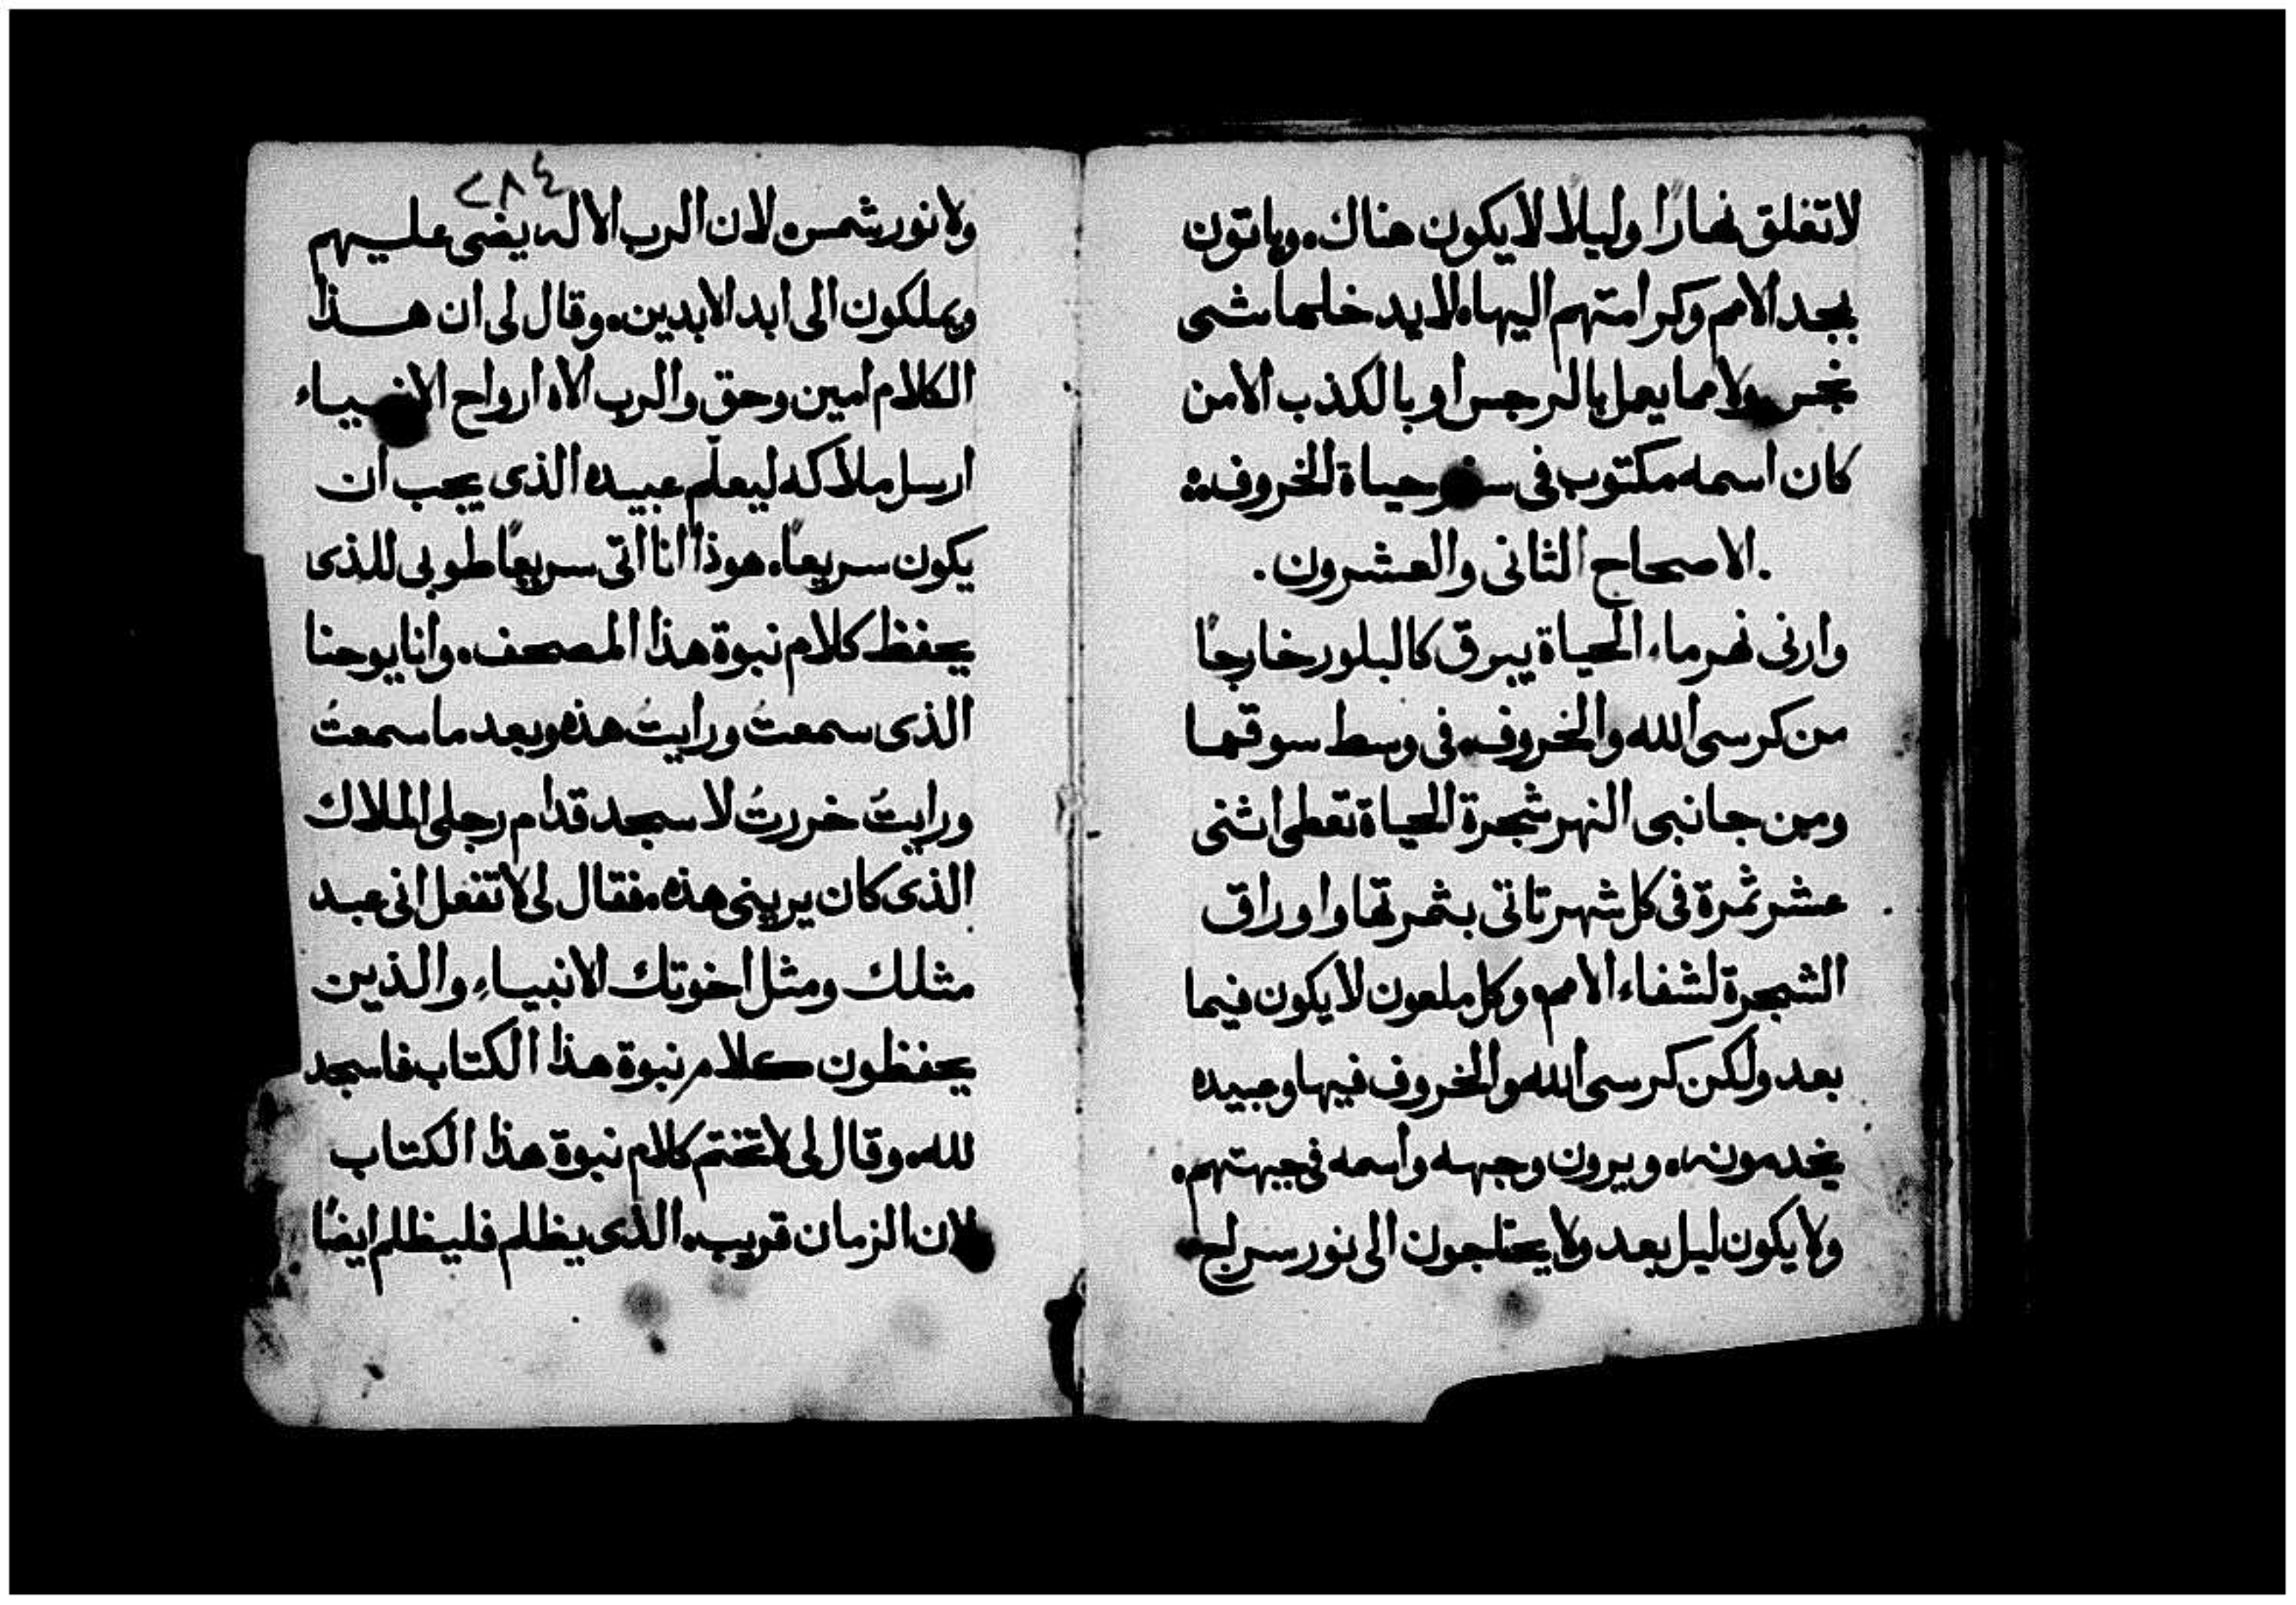 لاتغلق نهارًا وليلا لا يكون هناك. وياتون
بمجد الامم وكرامتهم اليها. لا يدخلها شى
نجس ولا مما يعمل بالرجس او بالكذب الا من
كان اسمه مكتوب فى سفر حياة الخروف:
.الاصحاح الثانى والعشرون.
وارنى نهر ماء الحياة يبرق كالبلور خارجًا
من كرسى الله والخروف. فى وسط سوقها
ومن جانبى النهر شجرة الحياة تعطى اثنى
عشر ثمرة فى كل شهر تاتى بثمرتها واوراق
الشجرة لشفاء الامم. وكل ملعون لا يكون فيها
بعد ولكن كرسى الله والخروف فيها وعبيده
يخدمونه. ويرون وجهه واسمه فى جبهتهم.
ولا يكون ليل بعد ولا يحتاجون الى نور سراج
٢٨٤
ولا نور شمس. لان الرب الاله يضى عليهم
ويملكون الى ابد الابدين. وقال لى ان هذا
الكلام امين وحق والرب الاه ارواح الانبياء
ارسل ملاكه ليعلم عبيده الذى يجب ان
يكون سريعًا. هوذا انا اتى سريعًا طوبى للذى
يحفظ كلام نبوة هذا المصحف. وانا يوحنا
الذى سمعتُ ورايتُ هذه وبعد ما سمعتُ
ورايتُ خررتُ لاسجد قدام رجلى الملاك
الذى كان يرينى هذه. فقال لى لا تفعل انى عبد
مثلك ومثل اخوتك الانبياء والذين
يحفظون كلام نبوة هذا الكتاب فاسجد
لله. وقال لى لا تختم كلام نبوة هذا الكتاب
لان الزمان قريب. الذى يظلم فليظلم ايضًا